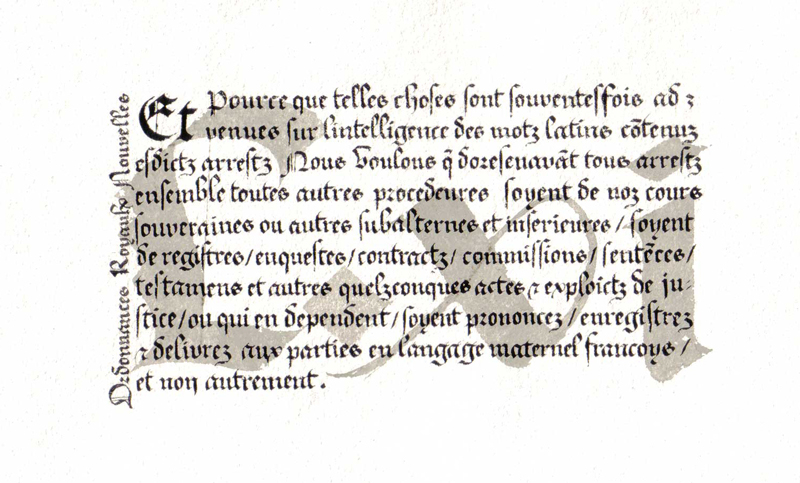 Et Pource que telles choses sont souventesfois ad⁊
venues sur lintelligence des motz latins cōtenuz
esdictz arrestz Nous Voulons q̃ doresenavāt tous arrestz
ensemble toutes autres procedeures soyent de noz cours
souveraines ou autres subalternes et inferieures / soyent
de registres / enquestes / contractz / commissions / sentēces /
testamens et autres quelzconques actes ⁊ exploictz de ju-
stice / ou qui en dependent / soyent prononcez / enregistrez
⁊ delivrez aux parties en langage maternel francoys /
et non autrement.
Ordonnances Royaulx Nouvelles
C.xi